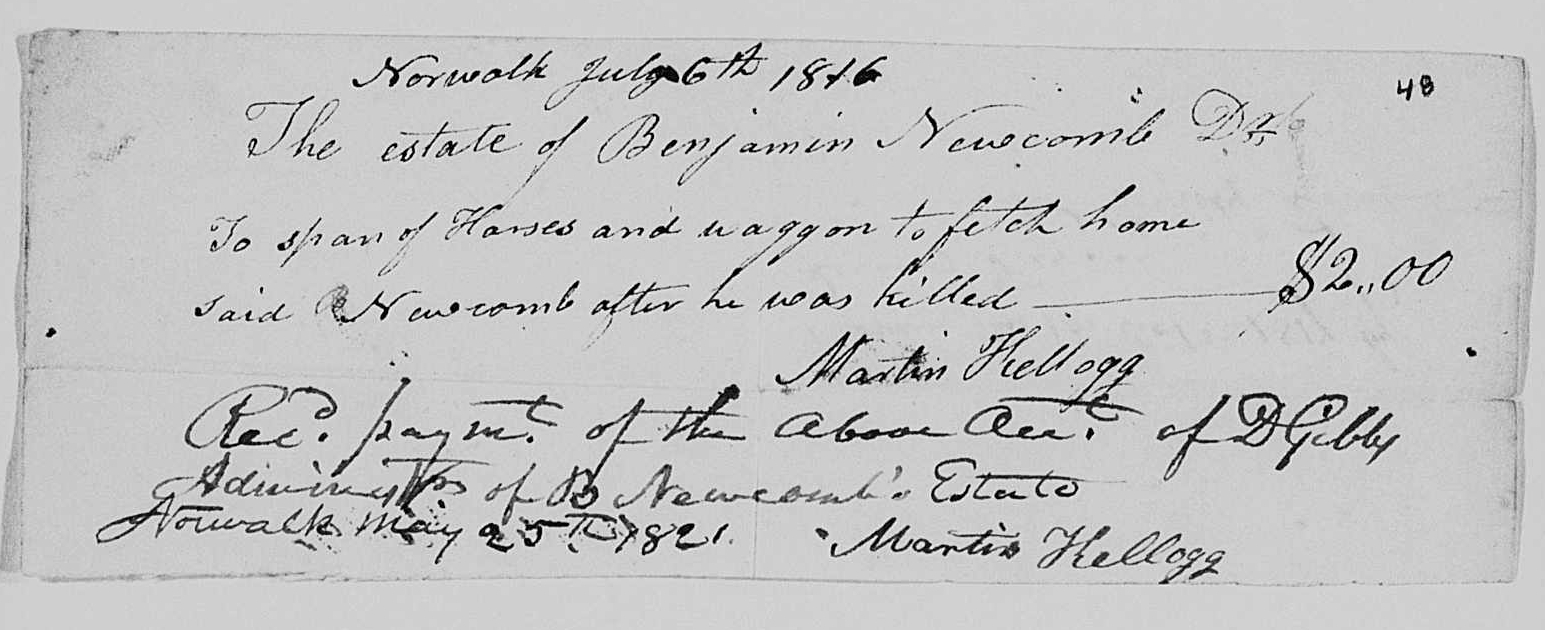 Norwalk July 6th 1816
48
The estate of Benjamin Newcomb Dr
To span of Horses and waggon to fetch home
said Newcomb after he was killed — $2,,00
Martin Kellogg
Recd. paymt. of the above Acct. of D Gibbs
of B Newcomb's Estate
Norwalk May 25th 1821.
Martin Kellogg